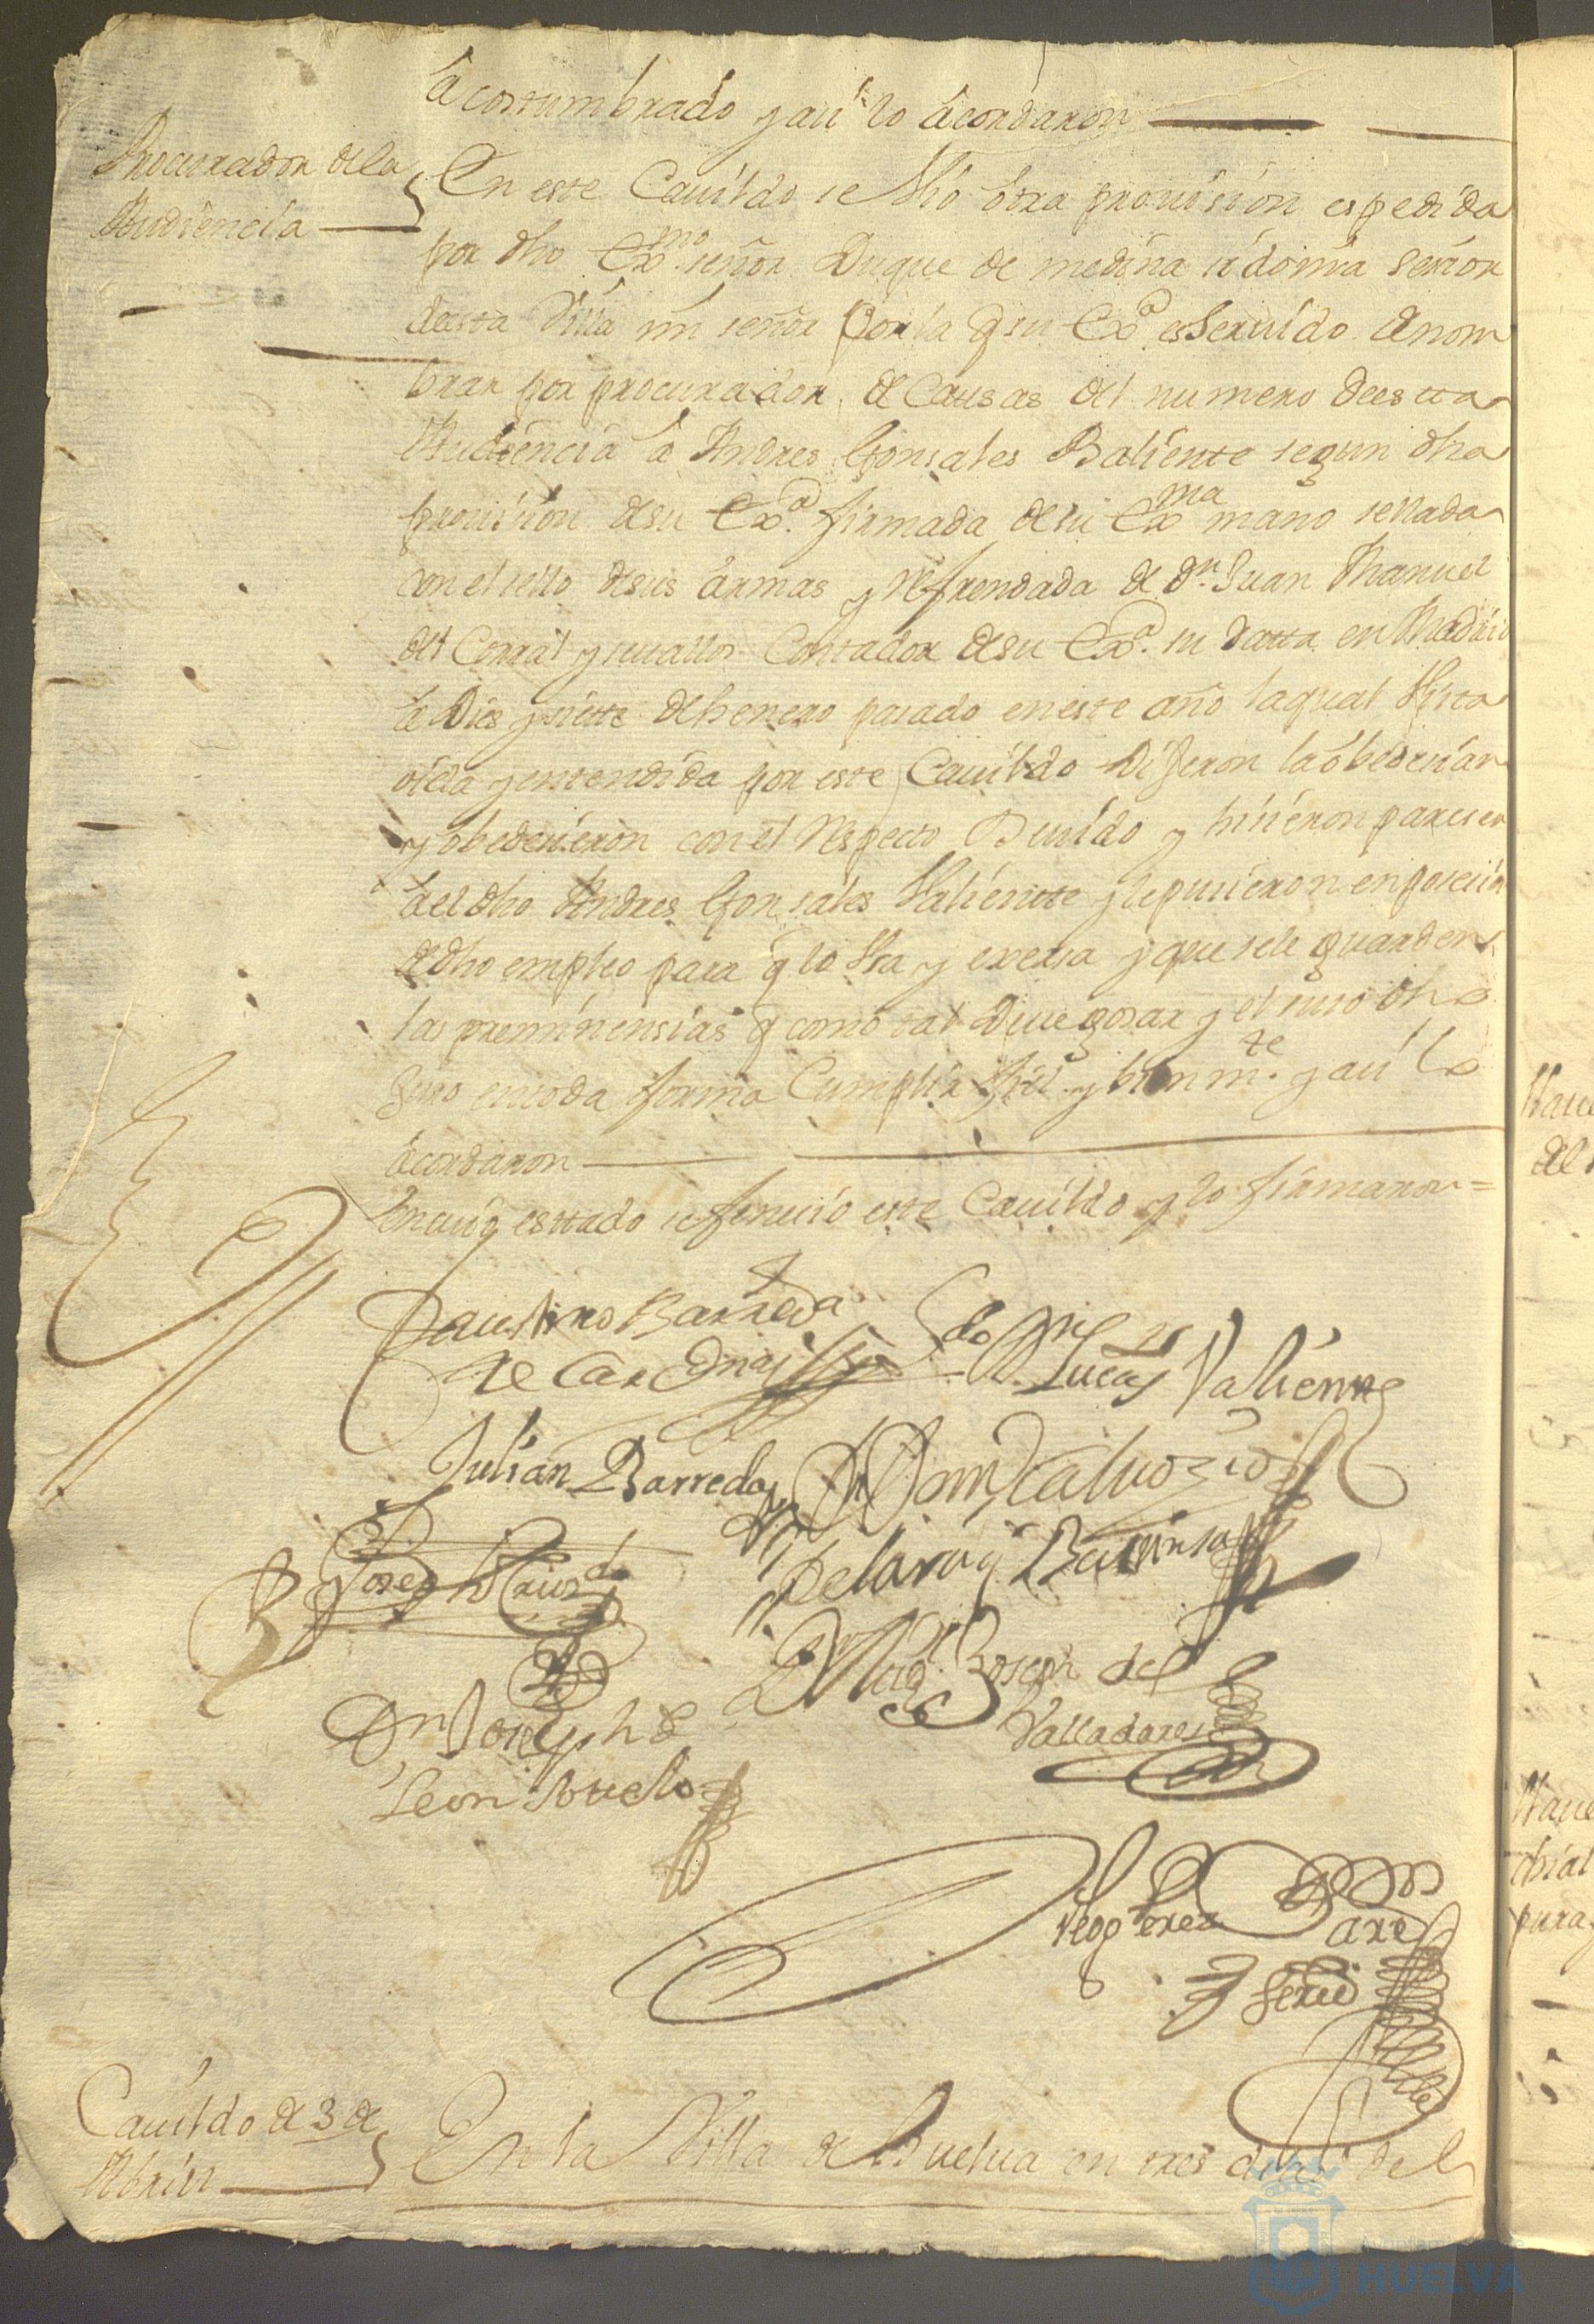 acostumbrado y asi lo acordaron
Procurador de la
Audiencia
En este Cauildo se Vio otra prouision espedida
por dho Exmo señor Duque de medina sidonia señor
desta Villa mi señor Por la q su Exa es seruido a nom
brar por procurador de Causas del numero de estta
Audiencia a Andres Gonsales Baliente segun dha
prouision de su Exa. firmada de su Exma mano sellada
con el sello de sus armas y Refrendada de Dn. Juan Manuel
del Corral y Contador de su Exa. su datta en Madrid
a Dies y siette de henero pasado en este año la qual Vista
oida y entendida por este Cauildo Dijeron la obedecian
y obedecieron con el Respecto Deuido y hisieron pareser
a el dho Andres Gonsales Valientte y le pusieron en posecion
de dho empleo para q lo Vsa y exersa y que se le guarden
las preminensias q como tal Deue gosar y el suso dho
Juro en toda forma Cumplir fiel y bienmte. y asi lo
acordaron
En cuio esttado se fenecio este Cauildo y lo firmaron =
Faustino Barreda
de Cardenas
Lucas Valiente
Julian Barreda
Joseph
Dn Joseph de
Leon
Joseph del
Valladares
Diego Perez
Cauildo de 3 de
Abril
En la Villa de Huelua en tres dias del
HUELVA